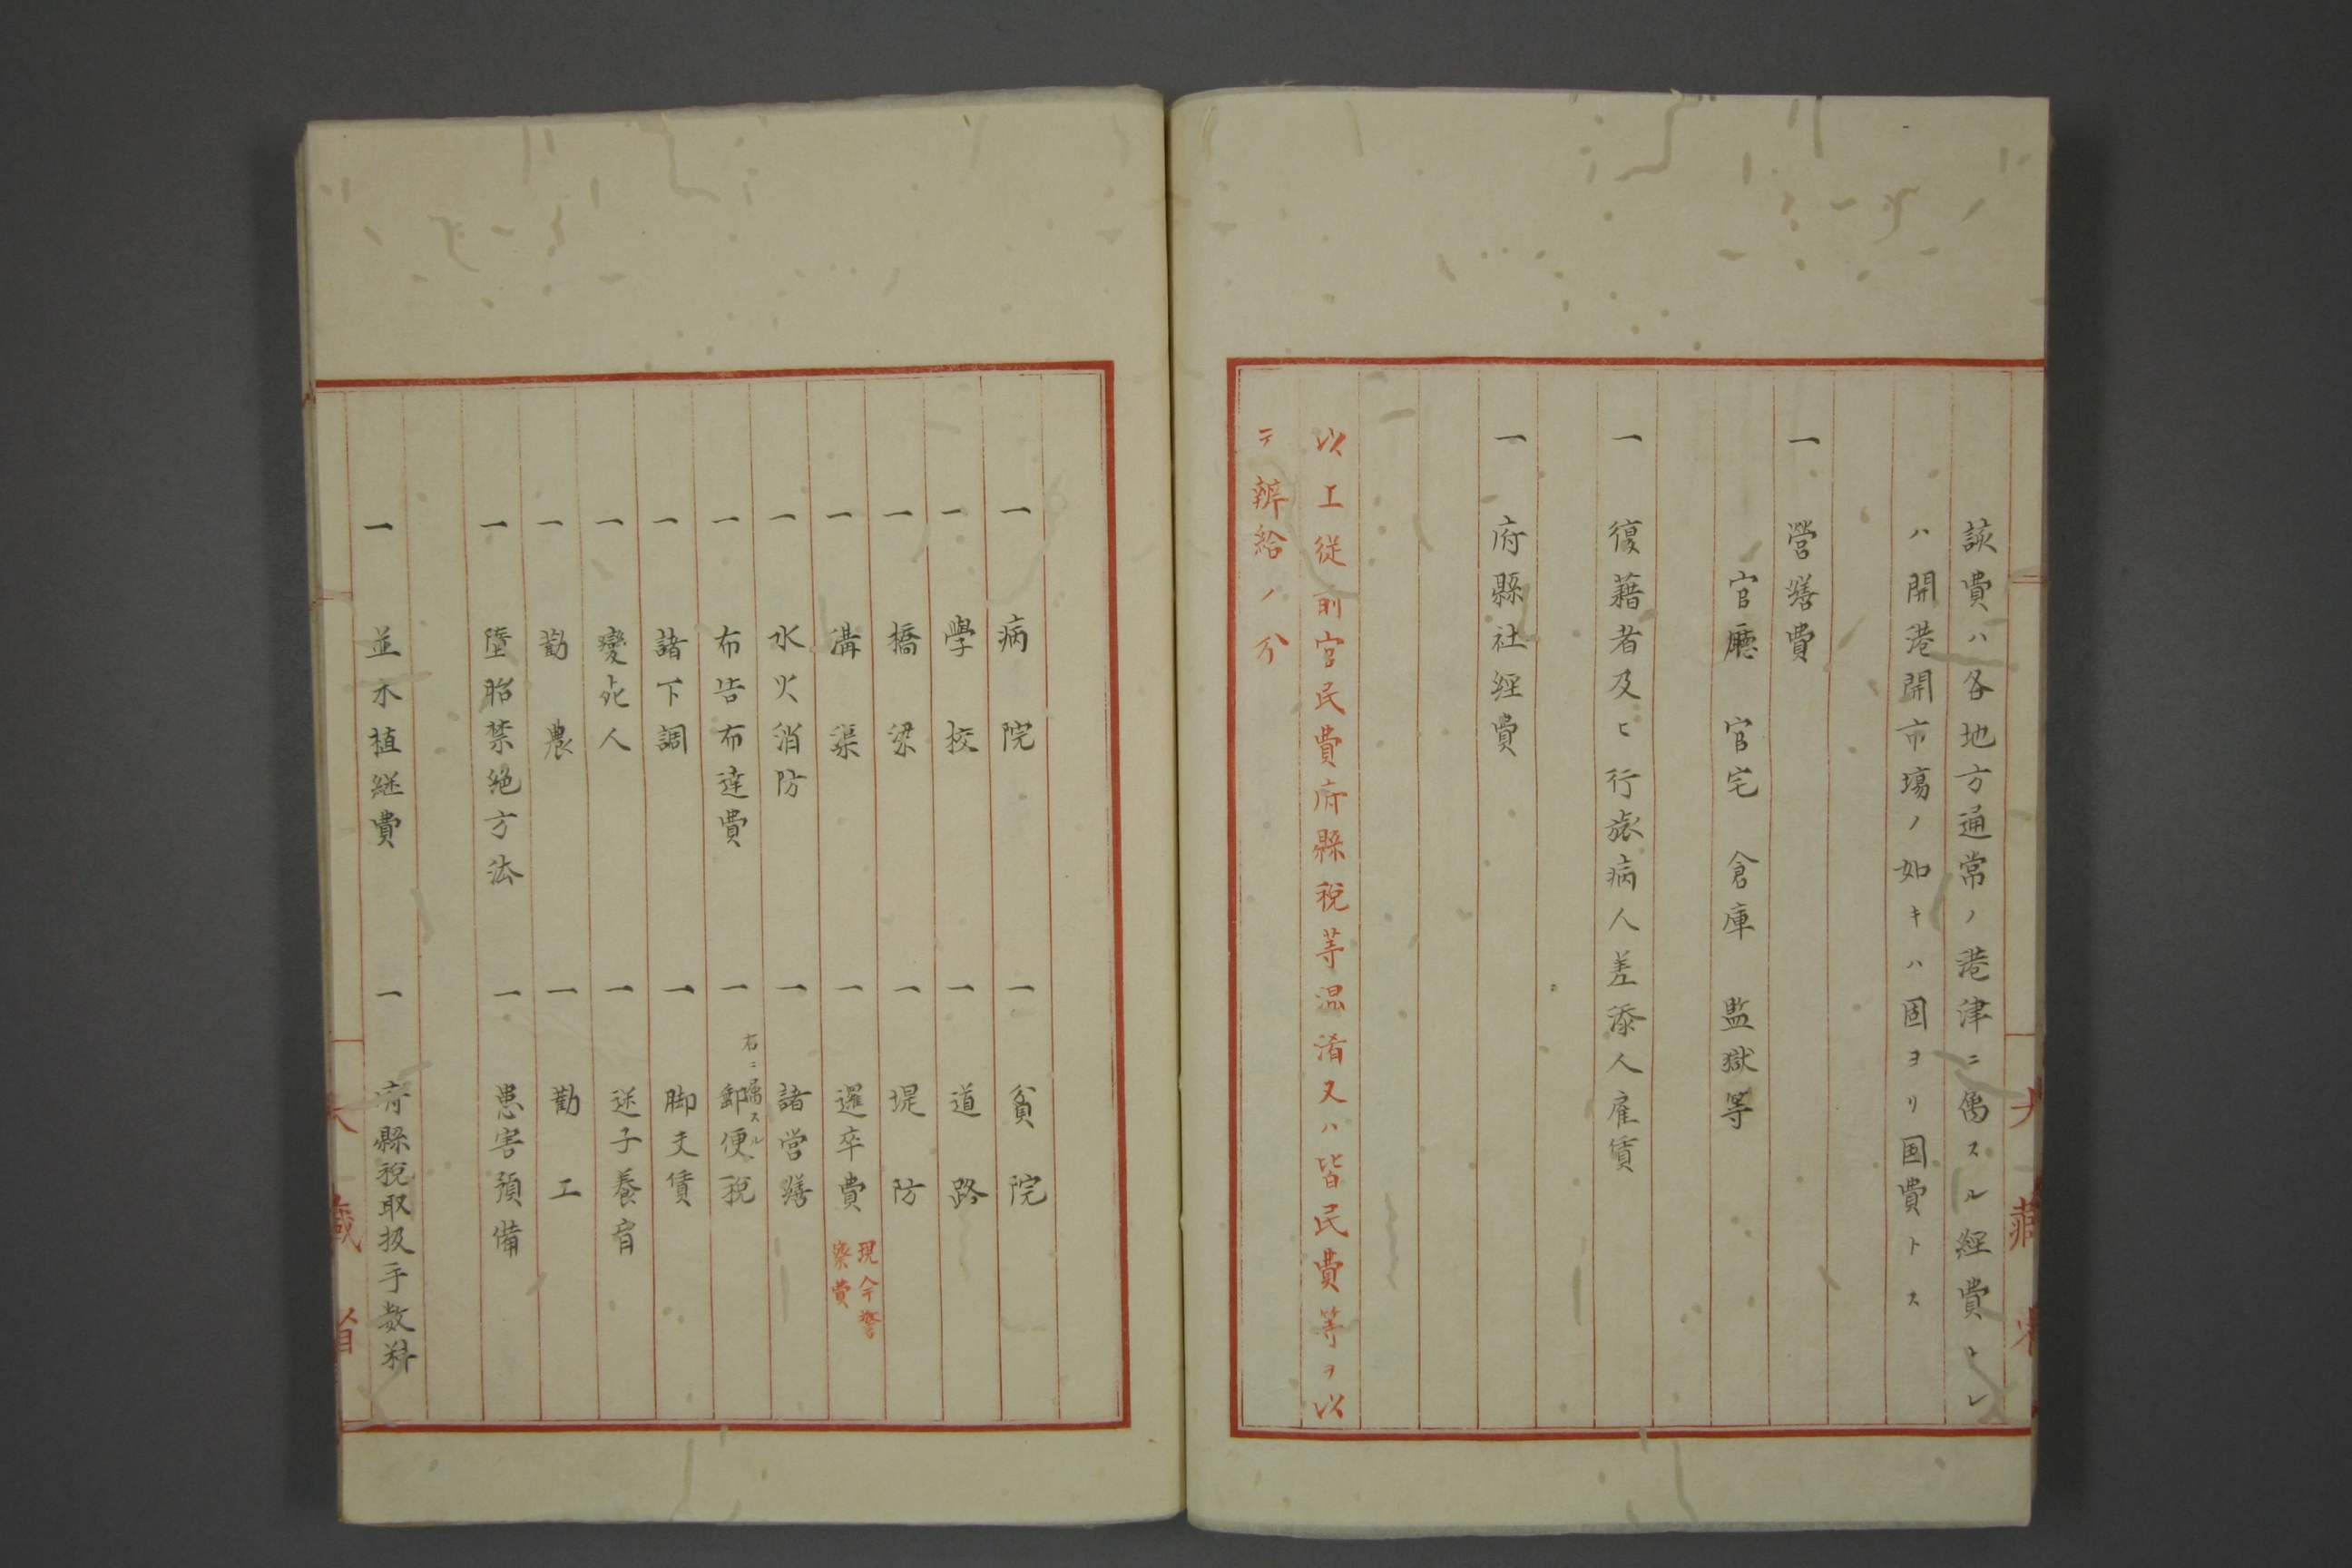 該費ハ各地方通常ノ港津ニ属スル経費トシ
ハ開港開市場ノ如キハ固ヨリ国費トス
一 營繕費
官廳 官宅 倉庫 監獄等
一 復藉者及ヒ行旅病人差添人雇賃
一 府縣社経費
以工従前官民費府縣税等混淆又ハ皆民費等ヲ以
テ辨給ノ分
大藏省
一 病院 一 貧院
一 學校 一 道路
一 橋梁 一 堤防
一 溝渠 一 邏卒費 現今警察費
一 水火消防 一 諸営繕
一 布告布達費 一 郵便税 右ニ属スル
一 諸下調 一 脚夫賃
一 變死人 一 迷子養育
一 勸農 一 勸工
一 墮胎禁絶方法 一 患害預備
一 並木植継費 一 府縣税取扱手数料
大藏省